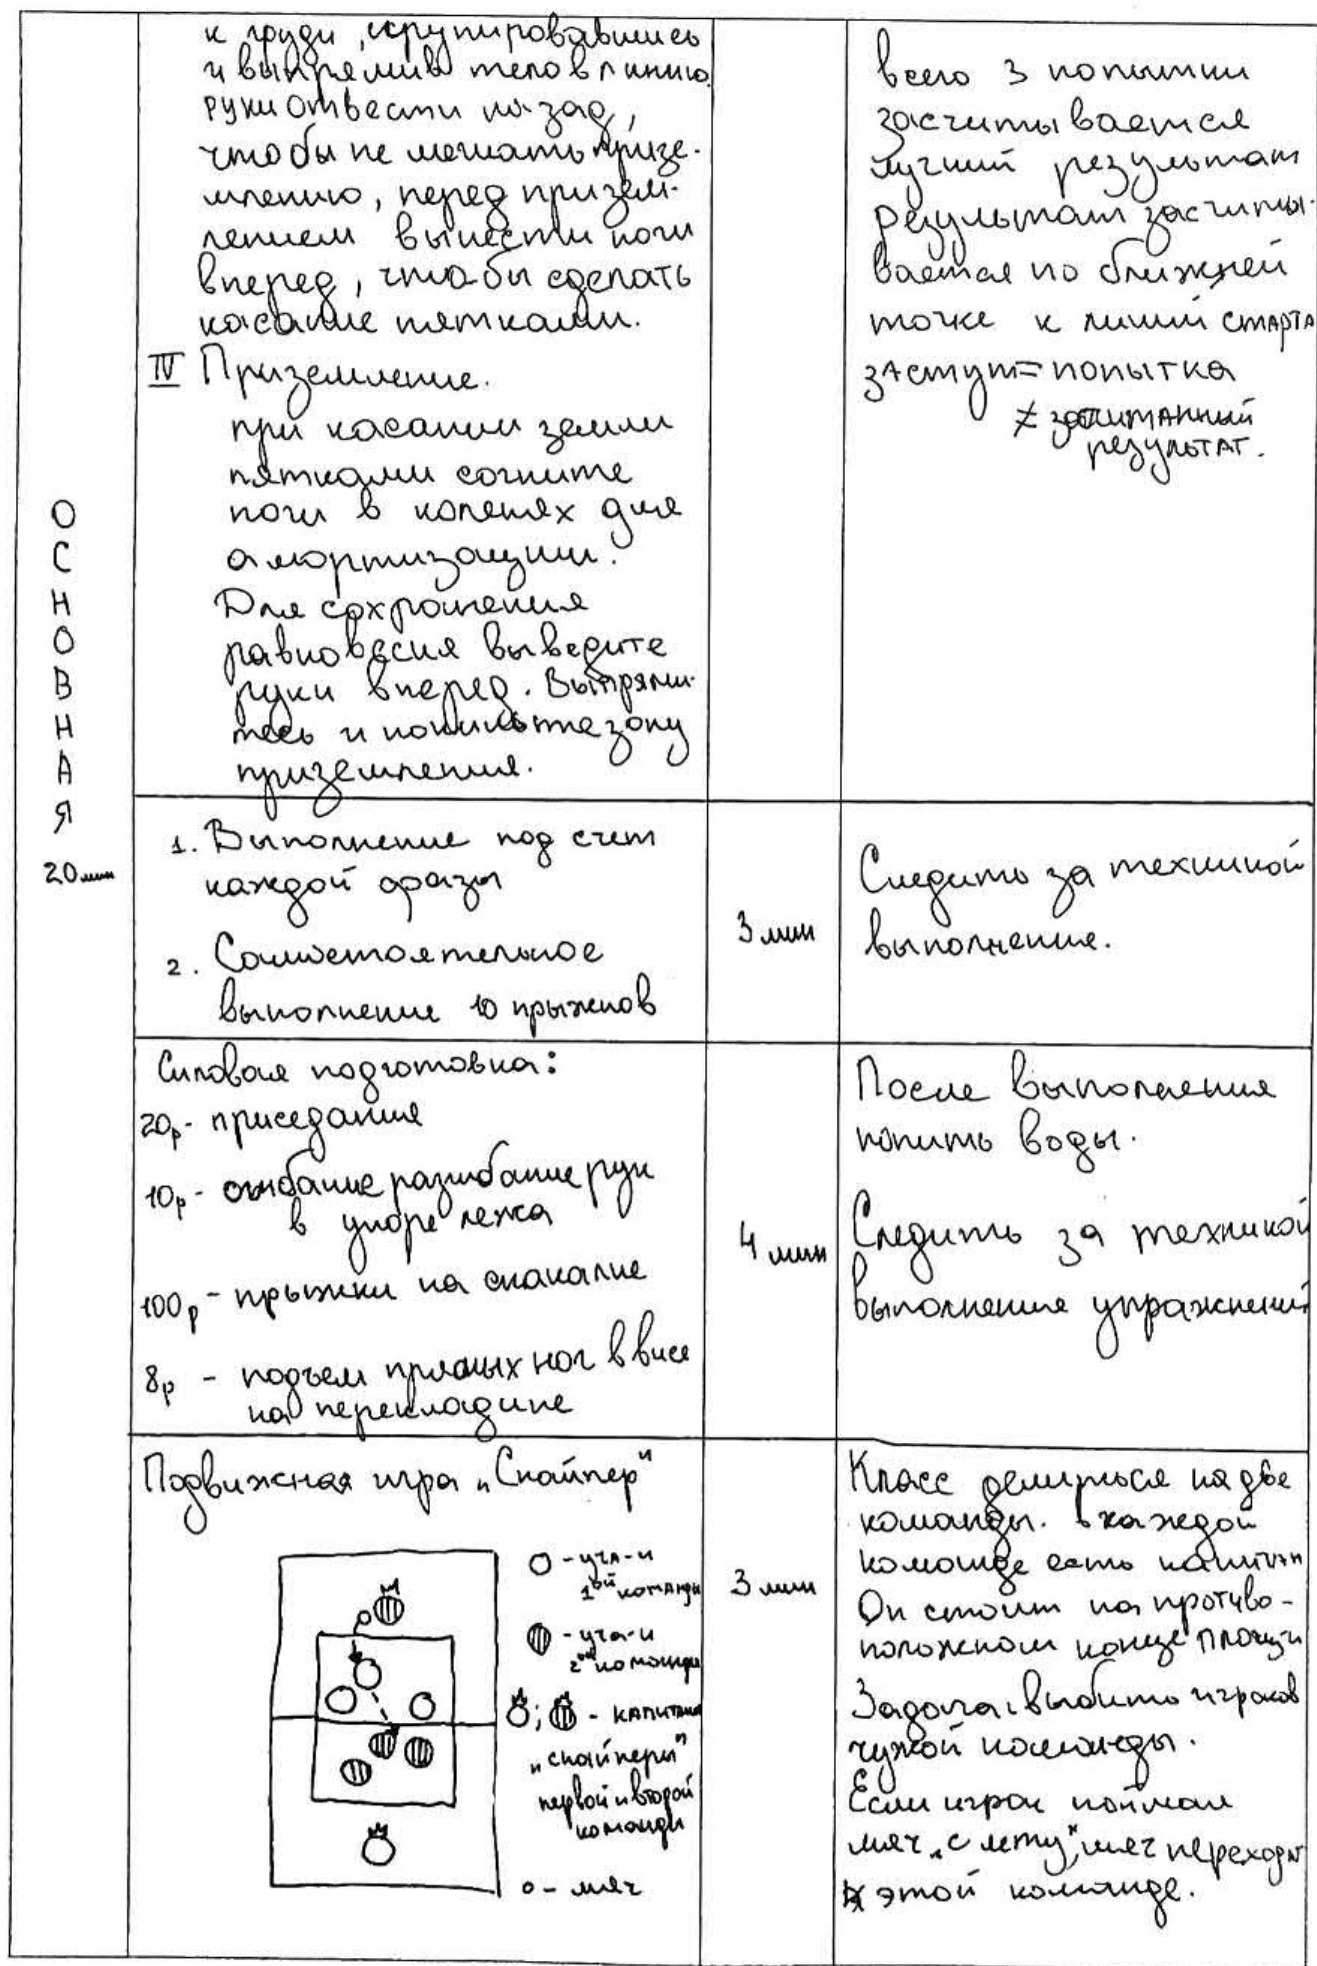 к груди, сгрупировавшись
и выпрямив тело в линию
руки отвести назад,
чтобы не мешать призе-
млению, перед призем-
лением вынести ноги
вперед, чтобы сделать
касание пятками.
IV Приземление.
при касании земли
пятками согните
ноги в коленях для
амортизации.
Для сохранения
равновесия выведите
руки вперед. Выпрями-
тесь и покиньте зону
приземления.
всего 3 попытки
засчитывается
лучший результат
результат засчиты-
вается по ближней
точке к линии старта
заступ = попытка
≠ засчитанный
результат.
ОСНОВНАЯ
20 мин
1. Выполнение под счет
каждой фразы
2. Самостоятельное
выполнение 10 прыжков
3 мин
Следить за техникой
выполнения.
Силовая подготовка:
20р - приседания
10р - сгибание разгибание рук
в упоре лежа
100р - прыжки на скакалке
8р - подъем прямых ног в висе
на перекладине
4 мин
После выполнения
попить воды.
Следить за техникой
выполнения упражнений
Подвижная игра „Снайпер"
О - уча-и
1ой команды
- уча-и
2ой команды
; - капитаны
„снайперы"
первой и второй
команды
о - мяч
3 мин
Класс делиться на две
команды. В каждой
команде есть капитан
Он стоит на противо-
положном конце площ-и
Задача: выбить игроков
чужой команды.
Если игрок поймал
мяч „с лету", мяч переходит
к этой команде.